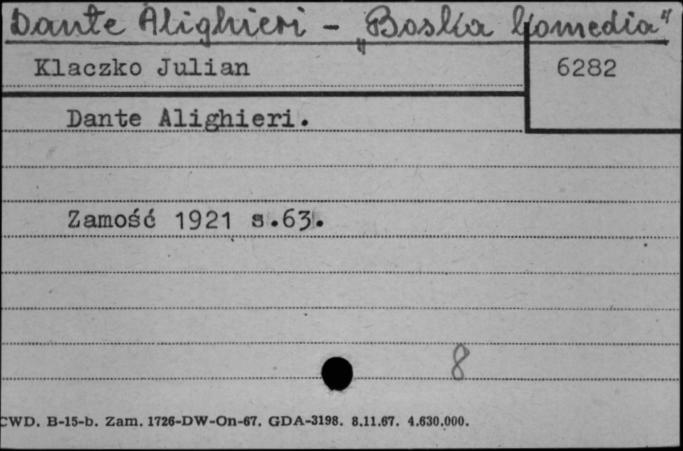 Dante Alighieri - "Boska komedia"
Klaczko Julian 6282
Dante Alighieri.
Zamość 1921 s.63.
8
CWD. B-15-b. Zam. 1726-DW-On-67. GDA-3198. 8.11.67. 4.630.000.